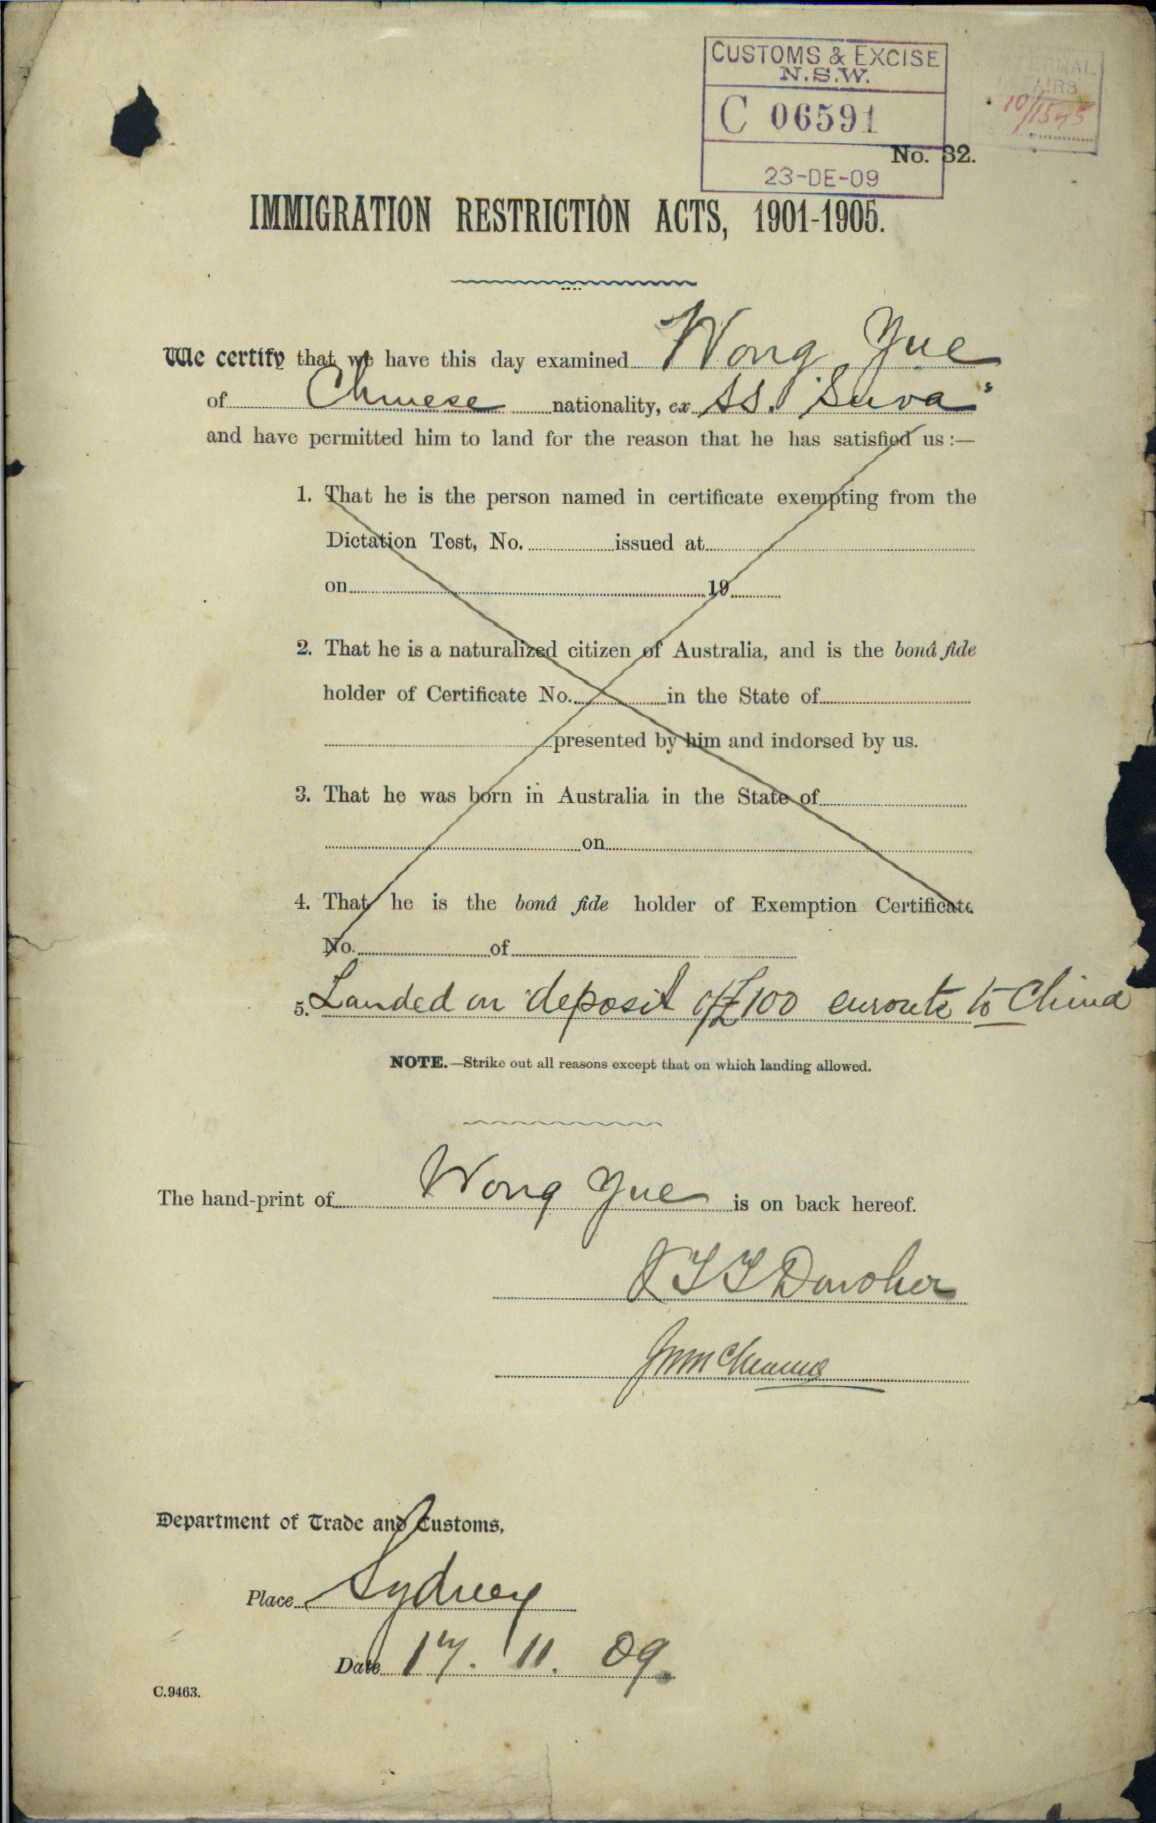 CUSTOMS & EXCISE
N.S.W.
C 06591
23-DE-09
10/1545
No. 32.
IMMIGRATION RESTRICTION ACTS, 1901-1905.
We certify that we have this day examined Wong Yue
of Chinese nationality, ex SS. "Suva"
and have permitted him to land for the reason that he has satisfied us :—
1. That he is the person named in certificate exempting from the
Dictation Test, No. issued at
on 19
2. That he is a naturalized citizen of Australia, and is the bonâ fide
holder of Certificate No. in the State of
presented by him and indorsed by us.
3. That he was born in Australia in the State of
on
4. That he is the bonâ fide holder of Exemption Certificate
No. of
5. Landed on deposit of £100 enroute to China
NOTE.—Strike out all reasons except that on which landing allowed.
The hand-print of Wong Yue is on back hereof.
Donoher
Department of Trade and Customs,
Place Sydney
Date 17. 11. 09.
C.9463.